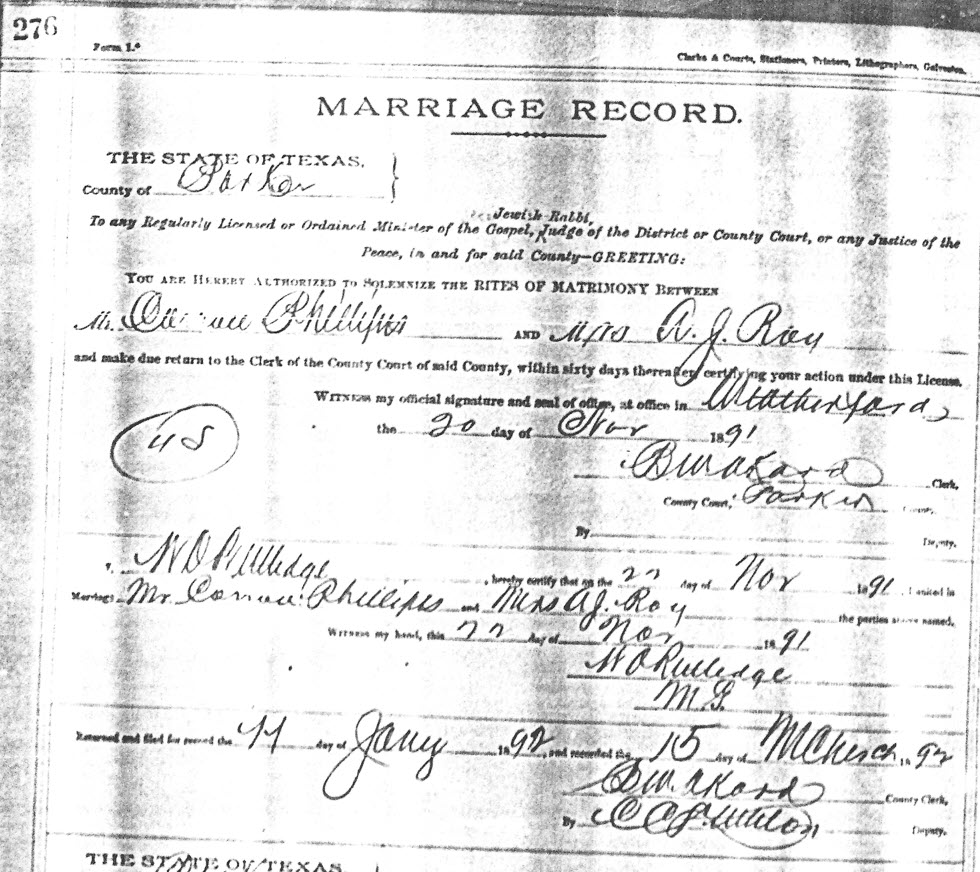 276
Form 1.
Clarke & Courts, Stationers, Printers, Lithographers, Galveston.
MARRIAGE RECORD.
THE STATE OF TEXAS,
County of Parker
Jewish Rabbi,
To any Regularly Licensed or Ordained Minister of the Gospel, Judge of the District or County Court, or any Justice of the
Peace, in and for said County—GREETING:
YOU ARE HEREBY AUTHORIZED TO SOLEMNIZE THE RITES OF MATRIMONY BETWEEN
Mr. Phillips AND Mrs A. J. Roy
and make due return to the Clerk of the County Court of said County, within sixty days thereafter, certifying your action under this License.
WITNESS my official signature and seal of office, at office in Weatherford
the 20 day of Nov 1891
B W Akard Clerk,
County Court, Parker County.
By Deputy.
I, W O Rutledge, hereby certify that on the 22 day of Nov 1891 I united in
Marriage Mr. Phillips and Mrs A J. Roy the parties above named.
Witness my hand, this 22 day of Nov 1891
W O Rutledge
M. G.
Returned and filed for record the day of Jany 1892, and recorded the 15 day of 1892
B W Akard County Clerk,
By Deputy.
THE STATE OF TEXAS,